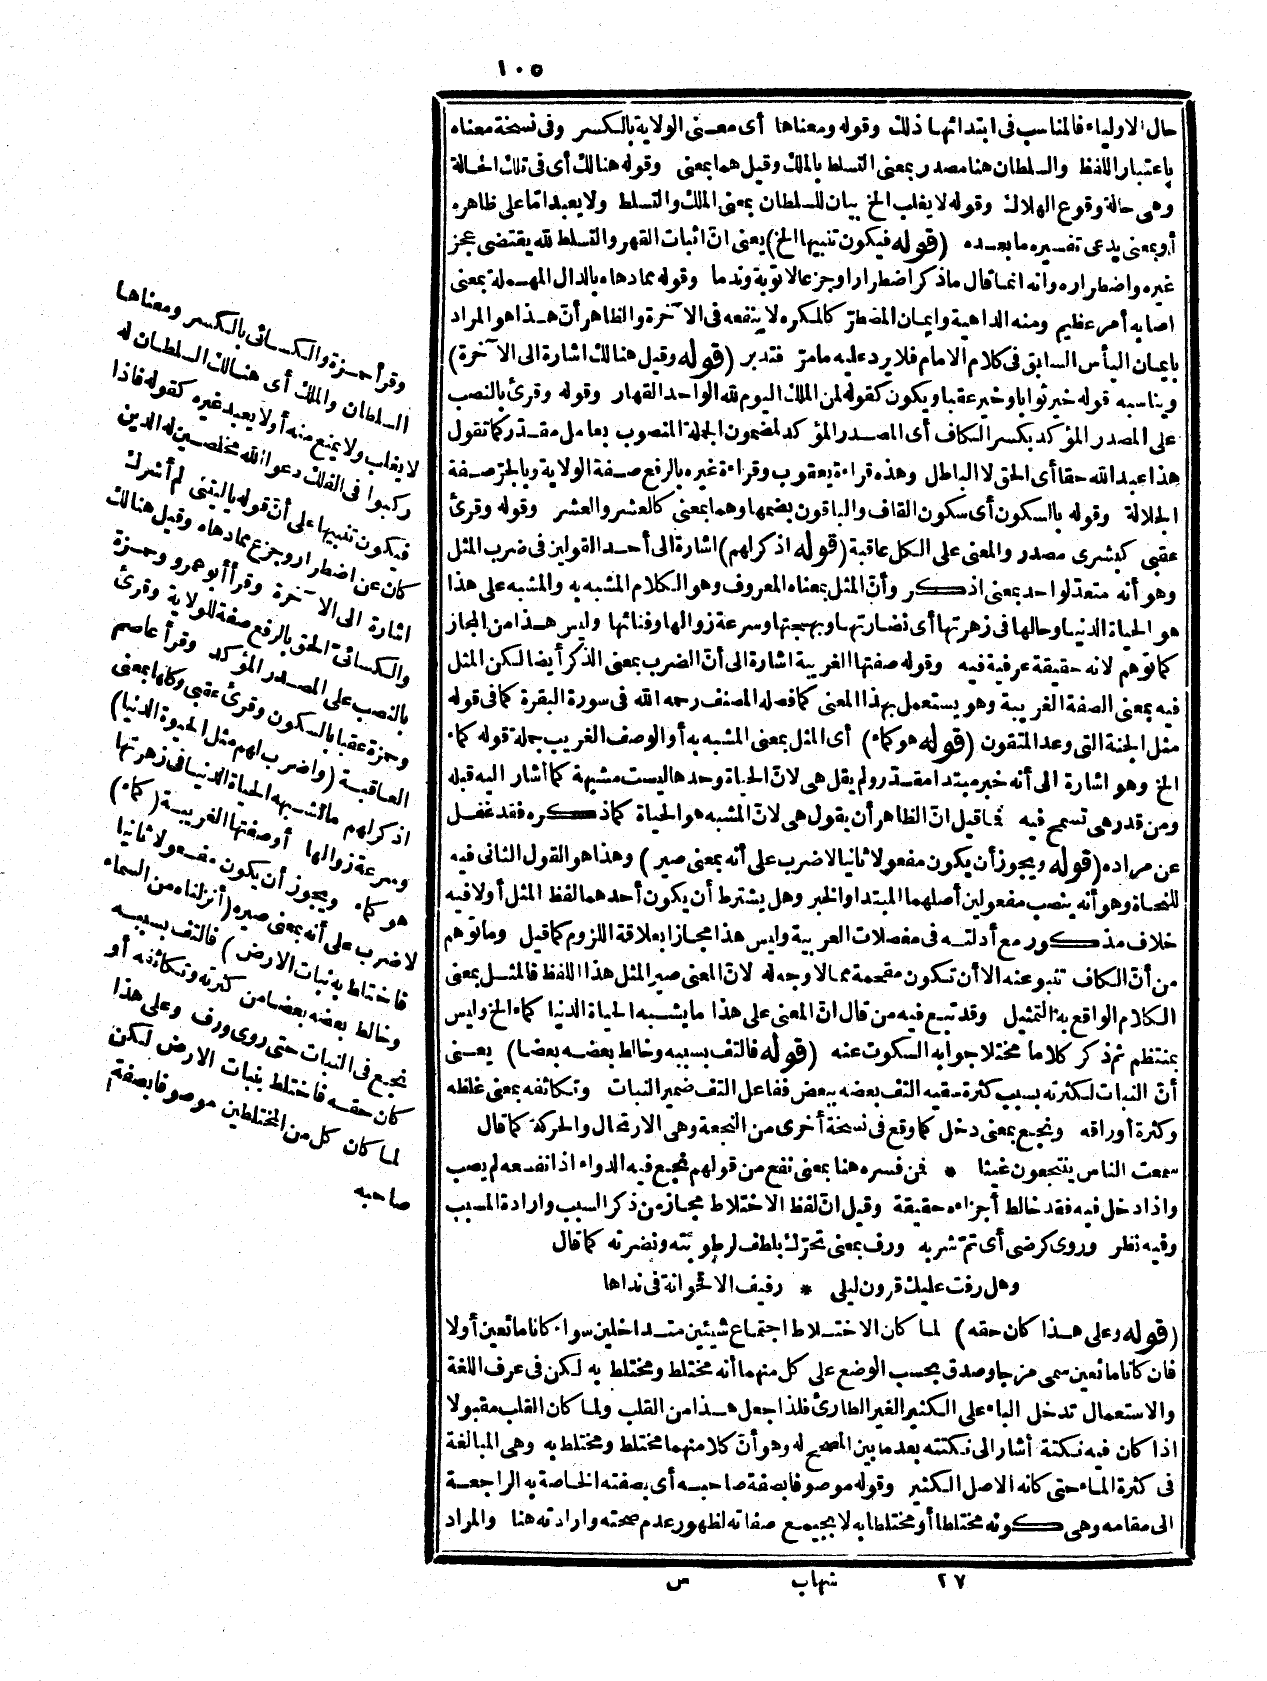 ١٠٥
حال الاولياء فالمناسب فى ابتدائها ذلك وقوله ومعناها أى معنى الولاية بالكسر وفى نسخة معناه
باعتبار اللفظ والسلطان هنا مصدر بمعنى التسلط بالملك وقيل هما بمعنى وقوله هنالك أى فى تلك الحالة
وهى حالة وقوع الهلاك وقوله لا يغلب الخ بيان للسلطان بمعنى الملك والتسلط ولا يعبد اما على ظاهره
أو بمعنى يدعى تفسيره ما بعده (قوله فيكون تنبيها الخ) يعنى انّ اثبات القهر والتسلط لله يقتضى عجز
غيره واضطراره وانه انما قال ماذكر اضطرارا وجزعا لا توبة وندما وقوله مما دهاه بالدال المهملة بمعنى
اصابه أمر عظيم ومنه الداهية وايمان المضطرّ كالمكره لا ينفعه فى الآخرة والظاهر أنّ هذا هو المراد
بايمان اليأس السابق فى كلام الامام فلا يرد عليه مامرّ فتدبر (قوله وقيل هنالك اشارة الى الآخرة)
ويناسبه قوله خير ثوابا وخير عقبا ويكون كقوله لمن الملك اليوم لله الواحد القهار وقوله وقرئ بالنصب
على المصدر المؤكد بكسر الكاف أى المصدر المؤكد لمضمون الجملة المنصوب بعامل مقدّر كما تقول
هذا عبد الله حقا أى الحق لا الباطل وهذه قراءة يعقوب وقراءة غيره بالرفع صفة الولاية وبالجرّ صفة
الجلالة وقوله بالسكون أى سكون القاف والباقون بضمها وهما بمعنى كالعشر والعشر وقوله وقرئ
عقبى كبشرى مصدر والمعنى على الكل عاقبة (قوله اذكر لهم) اشارة الى أحد القولين فى ضرب المثل
وهو أنه متعدّ لواحد بمعنى اذكر وأنّ المثل بمعناه المعروف وهو الكلام المشبه به والمشبه على هذا
هو الحياة الدنيا وحالها فى زهرتها أى نضارتها وبهجتها وسرعة زوالها وفنائها وليس هذا من المجاز
كما توهم لانه حقيقة عرفية فيه وقوله صفتها الغريبة اشارة الى أنّ الضرب بمعنى الذكر أيضا لكن المثل
فيه بمعنى الصفة الغريبة وهو يستعمل بهذا المعنى كما فصله المصنف رحمه الله فى سورة البقرة كما فى قوله
مثل الجنة التى وعد المتقون (قوله هو كماء) أى المثل بمعنى المشبه به أو الوصف الغريب جملة قوله كماء
الخ وهو اشارة الى أنه خبر مبتدا مقدّر ولم يقل هى لانّ الحياة وحدها ليست مشبهة كما أشار اليه قبله
ومن قدر هى تسمح فيه فما قيل انّ الظاهر أن يقول هى لانّ المشبه هو الحياة كما ذكره فقد غفل
عن مراده (قوله ويجوز أن يكون مفعولا ثانيا لاضرب على أنه بمعنى صير) وهذا هو القول الثانى فيه
للنحاة وهو أنه ينصب مفعولين أصلهما المبتدا والخبر وهل يشترط أن يكون أحدهما لفظ المثل أولا فيه
خلاف مذكور مع أدلته فى مفصلات العربية وليس هذا مجازا بعلاقة اللزوم كما قيل وما توهم
من أنّ الكاف تنبو عنه الا أن تكون مقحمة مما لا وجه له لانّ المعنى صير المثل هذا اللفظ فالمثل بمعنى
الكلام الواقع به التمثيل وقد تبع فيه من قال انّ المعنى على هذا ما يشبه الحياة الدنيا كماء الخ وليس
بمنتظم ثم ذكر كلاما مختلا جوابه السكوت عنه (قوله فالتف بسببه وخالط بعضه بعضا) يعنى
أنّ النبات لكثرته بسبب كثرة سقيه التف بعضه ببعض ففاعل التف ضمير النبات وتكاثفه بمعنى غلظه
وكثرة أوراقه ونجع بمعنى دخل كما وقع فى نسخة أخرى من النجعة وهى الارتحال والحركة كما قال
سمعت الناس ينتجعون غيثا * فمن فسره هنا بمعنى نفع من قولهم نجع فيه الدواء اذا نفعه لم يصب
واذا دخل فيه فقد خالط أجزاءه حقيقة وقيل انّ لفظ الاختلاط مجاز من ذكر السبب وارادة المسبب
وفيه نظر وروى كرضى أى تمّ شربه ورف بمعنى تحرّك بلطف لرطوبته ونضرته كما قال
وهل رفت عليك قرون ليلى * رفيف الاقحوانة فى نداها
(قوله وعلى هذا كان حقه) لما كان الاختلاط اجتماع شيئين متداخلين سواء كانا مائعين أولا
فان كانا مائعين سمى مزجا وصدق بحسب الوضع على كل منهما أنه مختلط ومختلط به لكن فى عرف اللغة
والاستعمال تدخل الباء على الكثير الغير الطارئ فلذا جعل هذا من القلب ولما كان القلب مقبولا
اذا كان فيه نكتة أشار الى نكتته بعد ما بين المصحح له وهو أنّ كلا منهما مختلط ومختلط به وهى المبالغة
فى كثرة الماء حتى كانه الاصل الكثير وقوله موصوفا بصفة صاحبه أى بصفته الخاصة به الراجعة
الى مقامه وهى كونه مختلطا أو مختلطا به لا بجميع صفاته لظهور عدم صحته وارادته هنا والمراد
٢٧ شهاب س
وقرأ حمزة والكسائى بالكسر ومعناها
السلطان والملك أى هنالك السلطان له
لا يغلب ولا يمنع منه أو لا يعبد غيره كقوله فاذا
ركبوا فى الفلك دعوا الله مخلصين له الدين
فيكون تنبيها على أنّ قوله ياليتنى لم أشرك
كان عن اضطرار وجزع مما دهاه وقيل هنالك
اشارة الى الآخرة وقرأ أبو عمرو وحمزة
والكسائىّ الحق بالرفع صفة للولاية وقرئ
بالنصب على المصدر المؤكد وقرأ عاصم
وحمزة عقبا بالسكون وقرئ عقبى وكلها بمعنى
العاقبة (واضرب لهم مثل الحيوة الدنيا)
اذكر لهم ما تشبه الحياة الدنيا فى زهرتها
وسرعة زوالها أو صفتها الغريبة (كماء)
هو كماء ويجوز أن يكون مفعولا ثانيا
لاضرب على أنه بمعنى صير (أنزلناه من السماء
فاختلط به نبات الارض) فالتف بسببه
وخالط بعضه بعضا من كثرته وتكاثفه أو
نجع فى النبات حتى روى ورف وعلى هذا
كان حقه فاختلط بنبات الارض لكن
لما كان كل من المختلطين موصوفا بصفة
صاحبه